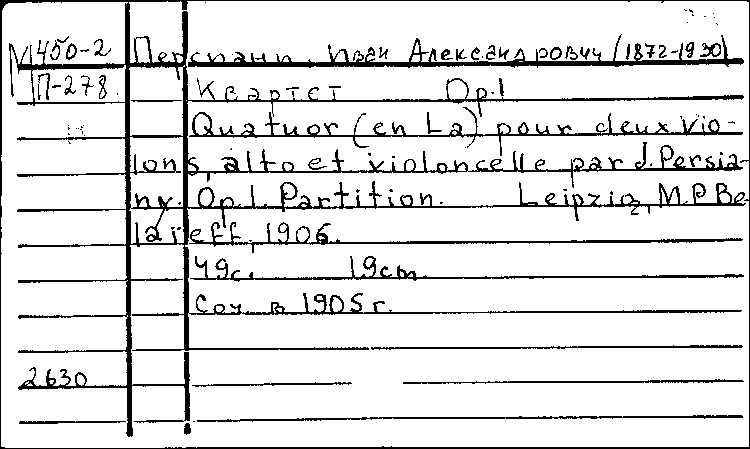 М 450-2 Персиани, Иван Александрович (1872-1930)
П-278 Квартет Op.1
Quatuor (en La) pour deux vio-
lons, alto et violoncelle par J. Persia-
ny. Op.1. Partition. Leipzig, M.P. Be-
laieff, 1906.
49с. 19cm.
Соч. в 1905 г.
2630